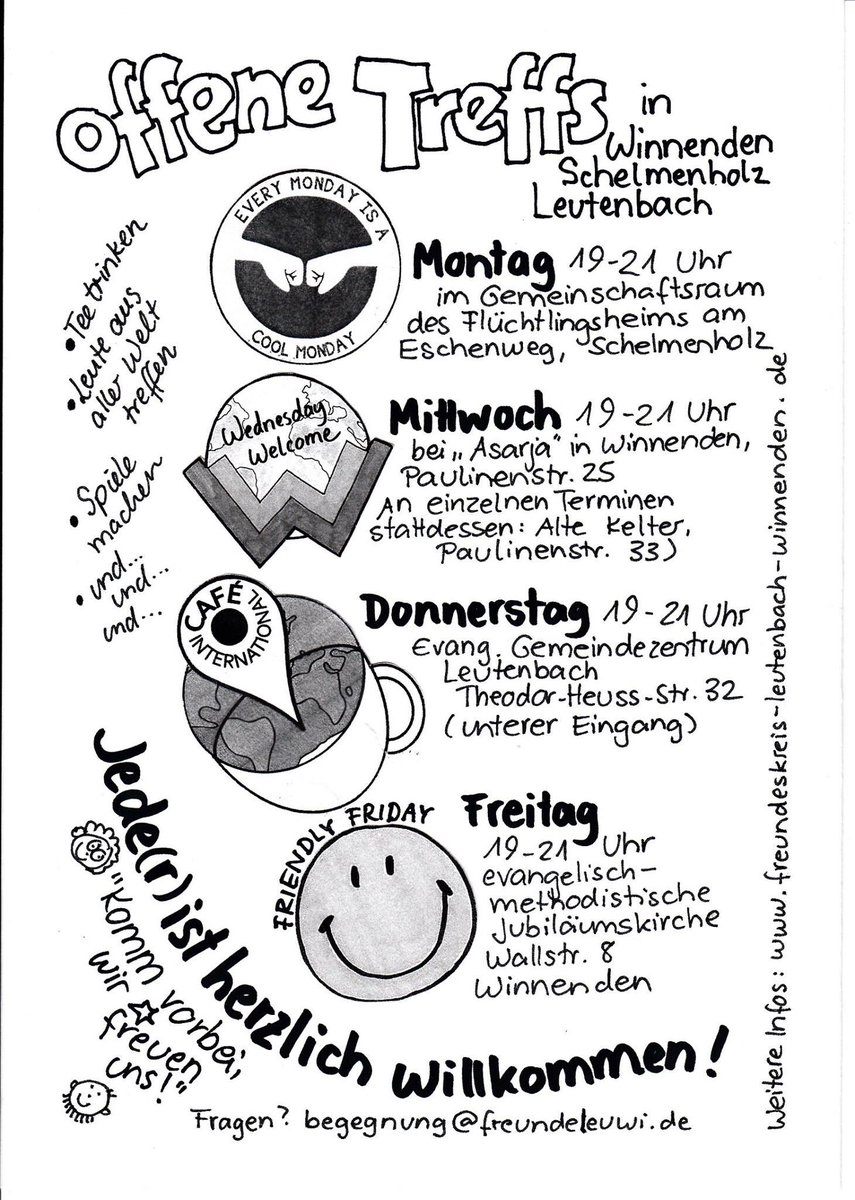 offene Treffs in
Winnenden
Schelmenholz
Leutenbach
EVERY MONDAY IS A
COOL MONDAY
Montag 19-21 Uhr
im Gemeinschaftsraum
des Flüchtlingsheims am
Eschenweg, Schelmenholz
• Tee trinken
• Leute aus
aller Welt
treffen
• Spiele
machen
• und...
und...
und...
Wednesday
Welcome
Mittwoch 19-21 Uhr
bei „Asarja" in Winnenden,
Paulinenstr. 25
An einzelnen Terminen
stattdessen: Alte Kelter,
Paulinenstr. 33)
CAFÉ
INTERNATIONAL
Donnerstag 19-21 Uhr
Evang. Gemeindezentrum
Leutenbach
Theodor-Heuss-Str. 32
(unterer Eingang)
FRIENDLY FRIDAY
Freitag
19-21 Uhr
evangelisch-
methodistische
Jubiläumskirche
Wallstr. 8
Winnenden
Jede(r) ist herzlich willkommen!
"Komm vorbei,
wir freuen
uns!"
Fragen? begegnung@freundeleuwi.de
Weitere Infos: www.freundeskreis-leutenbach-winnenden.de